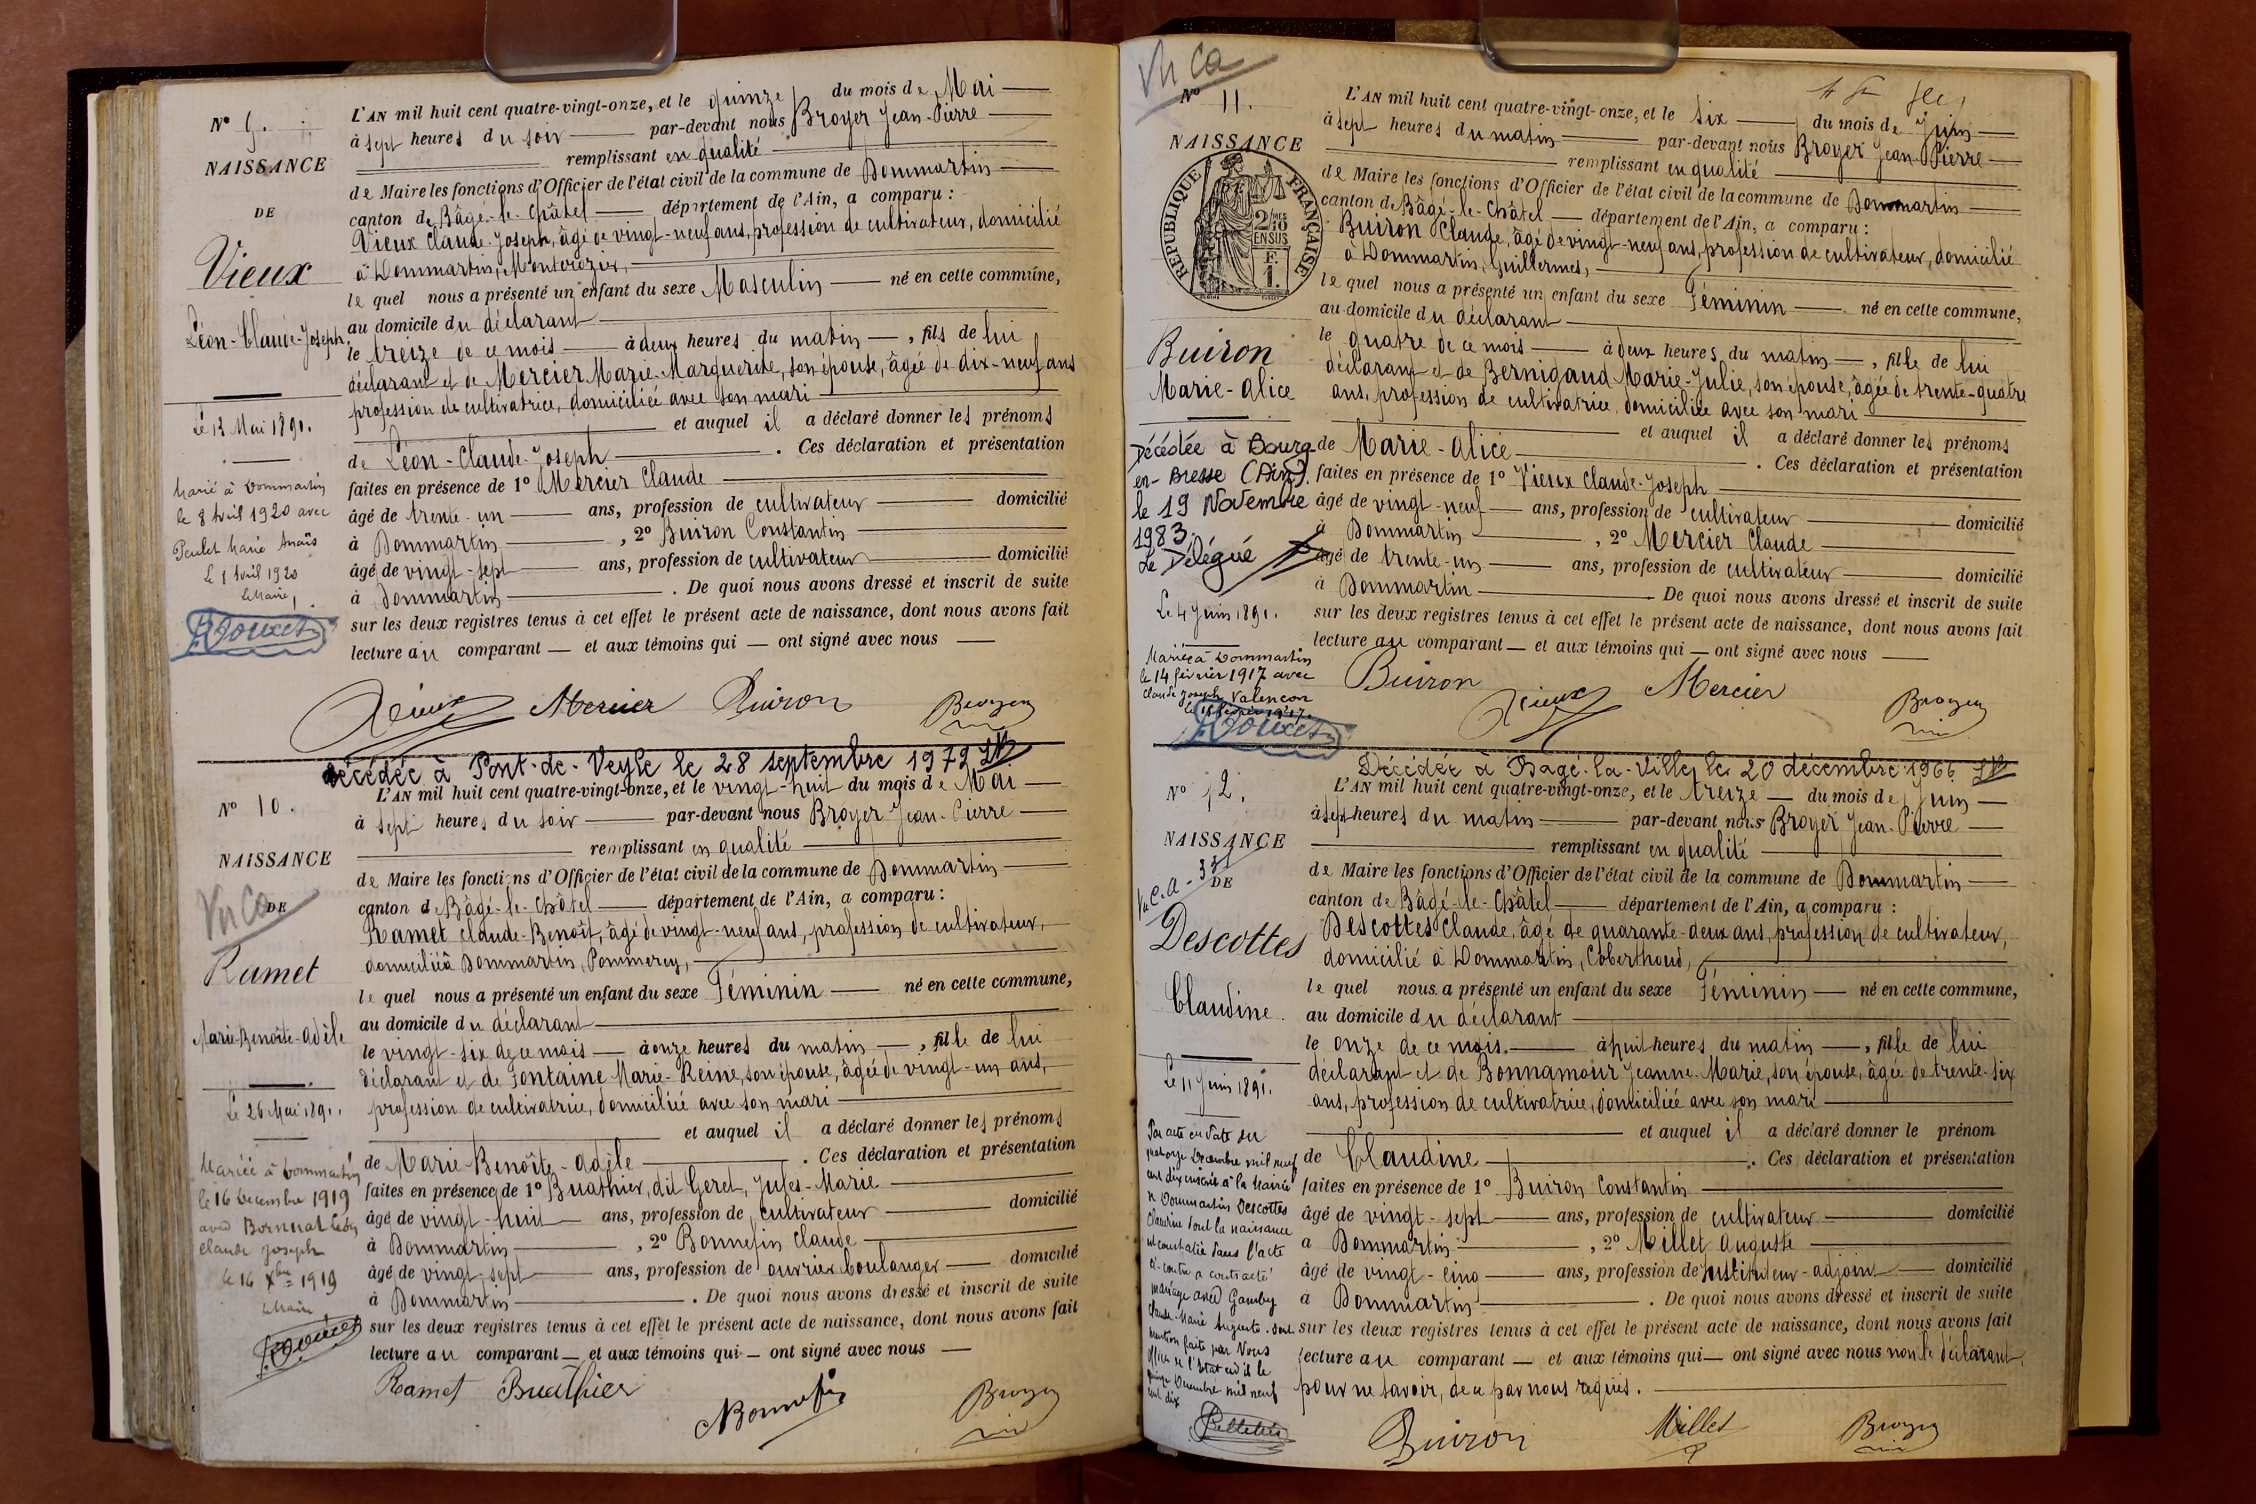 N° 9.
NAISSANCE
DE
Vieux
Léon-Claude-Joseph.
Le 13 Mai 1891.
Marié à Dommartin
le 8 Avril 1920 avec
Marie Anaïs
Le Maire,
L'AN mil huit cent quatre-vingt-onze, et le quinze du mois de Mai
à sept heures du soir par-devant nous Broyer Jean-Pierre
remplissant en qualité
de Maire les fonctions d'Officier de l'état civil de la commune de Dommartin
canton de Bâgé-le-Châtel département de l'Ain, a comparu :
Vieux Claude-Joseph, âgé de vingt-neuf ans, profession de cultivateur, domicilié
à Dommartin, Montorozier,
le quel nous a présenté un enfant du sexe Masculin né en cette commune,
au domicile du déclarant
le treize de ce mois à deux heures du matin, fils de lui
déclarant et de Mercier Marie-Marguerite, son épouse, âgée de dix-neuf ans
profession de cultivatrice, domiciliée avec son mari
et auquel il a déclaré donner les prénoms
de Léon-Claude-Joseph. Ces déclaration et présentation
faites en présence de 1° Mercier Claude
âgé de trente-un ans, profession de cultivateur domicilié
à Dommartin, 2° Buiron Constantin
âgé de vingt-sept ans, profession de cultivateur domicilié
à Dommartin. De quoi nous avons dressé et inscrit de suite
sur les deux registres tenus à cet effet le présent acte de naissance, dont nous avons fait
lecture au comparant et aux témoins qui ont signé avec nous
Vieux Mercier Buiron Broyer
Décédée à Pont-de-Veyle le 28 septembre 1979
N° 10.
NAISSANCE
DE
Vu CA
Ramet
Marie-Benoîte-Adèle
Le 26 Mai 1891.
Mariée à Dommartin
le 16 Décembre 1919
avec
Claude Joseph
le 16 Xbre 1919
Le Maire
L'AN mil huit cent quatre-vingt-onze, et le vingt-huit du mois de Mai
à sept heures du soir par-devant nous Broyer Jean-Pierre
remplissant en qualité
de Maire les fonctions d'Officier de l'état civil de la commune de Dommartin
canton de Bâgé-le-Châtel département de l'Ain, a comparu :
Ramet Claude-Benoît, âgé de vingt-neuf ans, profession de cultivateur,
domicilié à Dommartin, Pommerey,
le quel nous a présenté un enfant du sexe Féminin né en cette commune,
au domicile du déclarant
le vingt-six de ce mois à onze heures du matin, fille de lui
déclarant et de Fontaine Marie-Reine, son épouse, âgée de vingt-un ans,
profession de cultivatrice, domiciliée avec son mari
et auquel il a déclaré donner les prénoms
de Marie-Benoîte-Adèle. Ces déclaration et présentation
faites en présence de 1° Buathier, dit Geret, Jules-Marie
âgé de vingt-huit ans, profession de cultivateur domicilié
à Dommartin, 2° Bonnefin Claude
âgé de vingt-sept ans, profession de ouvrier boulanger domicilié
à Dommartin. De quoi nous avons dressé et inscrit de suite
sur les deux registres tenus à cet effet le présent acte de naissance, dont nous avons fait
lecture au comparant et aux témoins qui ont signé avec nous
Ramet Buathier Bonnefin Broyer
Vu CA
N° 11.
NAISSANCE
RÉPUBLIQUE FRANÇAISE
2/10MES
EN SUS
F.
1.
Buiron
Marie-Alice
Décédée à Bourg-
en-Bresse (Ain)
le 19 Novembre
1983.
Le Délégué
Le 4 Juin 1891.
Mariée à Dommartin
le 14 février 1917 avec
Claude Joseph Valençon
L'AN mil huit cent quatre-vingt-onze, et le six du mois de Juin
à sept heures du matin par-devant nous Broyer Jean-Pierre
remplissant en qualité
de Maire les fonctions d'Officier de l'état civil de la commune de Dommartin
canton de Bâgé-le-Châtel département de l'Ain, a comparu :
Buiron Claude, âgé de vingt-neuf ans, profession de cultivateur, domicilié
à Dommartin, Guillermes,
le quel nous a présenté un enfant du sexe Féminin né en cette commune,
au domicile du déclarant
le quatre de ce mois à deux heures du matin, fille de lui
déclarant et de Bernigaud Marie-Julie, son épouse, âgée de trente-quatre
ans, profession de cultivatrice domiciliée avec son mari
et auquel il a déclaré donner les prénoms
de Marie-Alice. Ces déclaration et présentation
faites en présence de 1° Vieux Claude-Joseph
âgé de vingt-neuf ans, profession de cultivateur domicilié
à Dommartin, 2° Mercier Claude
âgé de trente-un ans, profession de cultivateur domicilié
à Dommartin De quoi nous avons dressé et inscrit de suite
sur les deux registres tenus à cet effet le présent acte de naissance, dont nous avons fait
lecture au comparant et aux témoins qui ont signé avec nous
Buiron Vieux Mercier Broyer
Décédée à Bâgé-la-Ville le 20 décembre 1966
N° 12.
NAISSANCE
DE
Descottes
Claudine.
Le 11 Juin 1891.
Par acte en date du
quatorze Décembre mil neuf
cent dix inscrit à la Mairie
de Dommartin Descottes
Claudine dont la naissance
est constatée dans l'acte
ci-contre a contracté
mariage avec Gamby
Claude Marie Auguste. Dont
mention faite par Nous
officier de l'état civil le
quinze Décembre mil neuf
cent dix
L'AN mil huit cent quatre-vingt-onze, et le treize du mois de Juin
à sept heures du matin par-devant nous Broyer Jean-Pierre
remplissant en qualité
de Maire les fonctions d'Officier de l'état civil de la commune de Dommartin
canton de Bâgé-le-Châtel département de l'Ain, a comparu :
Descottes Claude, âgé de quarante-deux ans, profession de cultivateur,
domicilié à Dommartin, Coberthoud,
le quel nous a présenté un enfant du sexe Féminin né en cette commune,
au domicile du déclarant
le onze de ce mois à huit heures du matin, fille de lui
déclarant et de Bonnamour Jeanne-Marie, son épouse, âgée de trente-six
ans, profession de cultivatrice, domiciliée avec son mari
et auquel il a déclaré donner le prénom
de Claudine. Ces déclaration et présentation
faites en présence de 1° Buiron Constantin
âgé de vingt-sept ans, profession de cultivateur domicilié
à Dommartin, 2° Millet Auguste
âgé de vingt-cinq ans, profession de Instituteur-adjoint domicilié
à Dommartin. De quoi nous avons dressé et inscrit de suite
sur les deux registres tenus à cet effet le présent acte de naissance, dont nous avons fait
lecture au comparant et aux témoins qui ont signé avec nous non le déclarant,
pour ne savoir, de ce par nous requis.
Buiron Millet Broyer